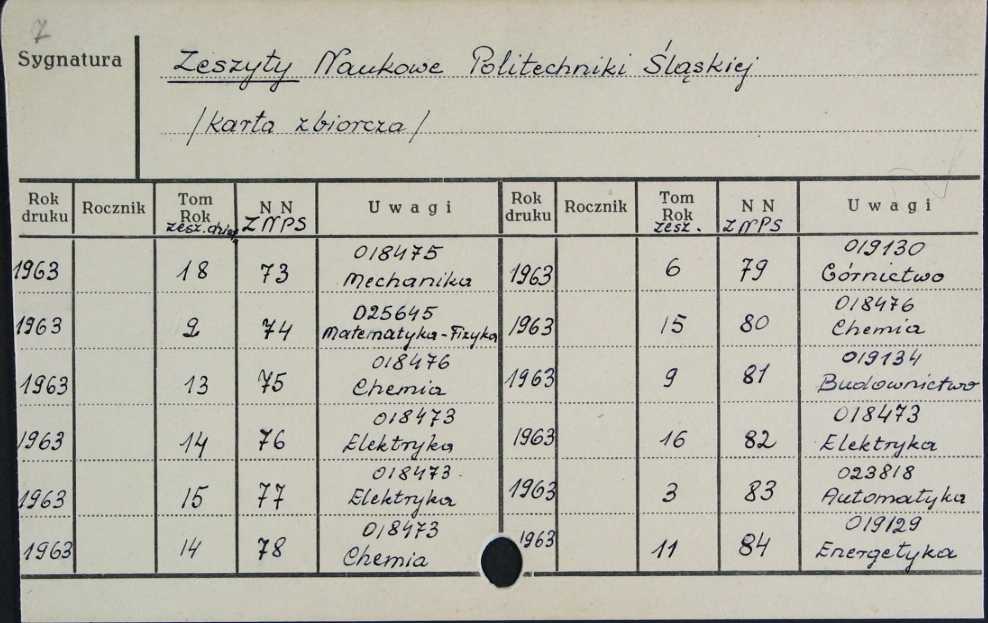 7
Sygnatura
Zeszyty Naukowe Politechniki Śląskiej
/karta zbiorcza/
Rok druku Rocznik Tom Rok zesz. N N ZNPS Uwagi Rok druku Rocznik Tom Rok zesz. N N ZNPS Uwagi
1963 18 73 018475 Mechanika 1963 6 79 019130 Górnictwo
1963 2 74 025645 Matematyka-Fizyka 1963 15 80 018476 Chemia
1963 13 75 018476 Chemia 1963 9 81 019134 Budownictwo
1963 14 76 018473 Elektryka 1963 16 82 018473 Elektryka
1963 15 77 018473 Elektryka 1963 3 83 023818 Automatyka
1963 14 78 018473 Chemia 1963 11 84 019129 Energetyka